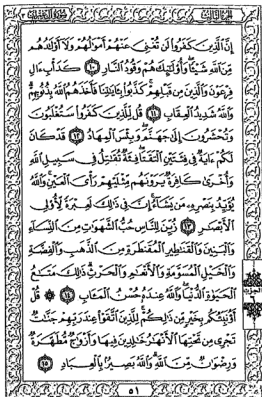 الجزء الثالث سورة آل عمران ٣
إِنَّ ٱلَّذِينَ كَفَرُوا۟ لَن تُغْنِىَ عَنْهُمْ أَمْوَٰلُهُمْ وَلَآ أَوْلَٰدُهُم
مِّنَ ٱللَّهِ شَيْـًٔا وَأُو۟لَٰٓئِكَ هُمْ وَقُودُ ٱلنَّارِ ١٠ كَدَأْبِ ءَالِ
فِرْعَوْنَ وَٱلَّذِينَ مِن قَبْلِهِمْ كَذَّبُوا۟ بِـَٔايَٰتِنَا فَأَخَذَهُمُ ٱللَّهُ بِذُنُوبِهِمْ
وَٱللَّهُ شَدِيدُ ٱلْعِقَابِ ١١ قُل لِّلَّذِينَ كَفَرُوا۟ سَتُغْلَبُونَ
وَتُحْشَرُونَ إِلَىٰ جَهَنَّمَ وَبِئْسَ ٱلْمِهَادُ ١٢ قَدْ كَانَ
لَكُمْ ءَايَةٌ فِى فِئَتَيْنِ ٱلْتَقَتَا فِئَةٌ تُقَٰتِلُ فِى سَبِيلِ ٱللَّهِ
وَأُخْرَىٰ كَافِرَةٌ يَرَوْنَهُم مِّثْلَيْهِمْ رَأْىَ ٱلْعَيْنِ وَٱللَّهُ
يُؤَيِّدُ بِنَصْرِهِۦ مَن يَشَآءُ إِنَّ فِى ذَٰلِكَ لَعِبْرَةً لِّأُو۟لِى
ٱلْأَبْصَٰرِ ١٣ زُيِّنَ لِلنَّاسِ حُبُّ ٱلشَّهَوَٰتِ مِنَ ٱلنِّسَآءِ
وَٱلْبَنِينَ وَٱلْقَنَٰطِيرِ ٱلْمُقَنطَرَةِ مِنَ ٱلذَّهَبِ وَٱلْفِضَّةِ
وَٱلْخَيْلِ ٱلْمُسَوَّمَةِ وَٱلْأَنْعَٰمِ وَٱلْحَرْثِ ذَٰلِكَ مَتَٰعُ
ٱلْحَيَوٰةِ ٱلدُّنْيَا وَٱللَّهُ عِندَهُۥ حُسْنُ ٱلْمَـَٔابِ ١٤ ۞ قُلْ
أَؤُنَبِّئُكُم بِخَيْرٍ مِّن ذَٰلِكُمْ لِلَّذِينَ ٱتَّقَوْا۟ عِندَ رَبِّهِمْ جَنَّٰتٌ
تَجْرِى مِن تَحْتِهَا ٱلْأَنْهَٰرُ خَٰلِدِينَ فِيهَا وَأَزْوَٰجٌ مُّطَهَّرَةٌ
وَرِضْوَٰنٌ مِّنَ ٱللَّهِ وَٱللَّهُ بَصِيرٌۢ بِٱلْعِبَادِ ١٥
٥١